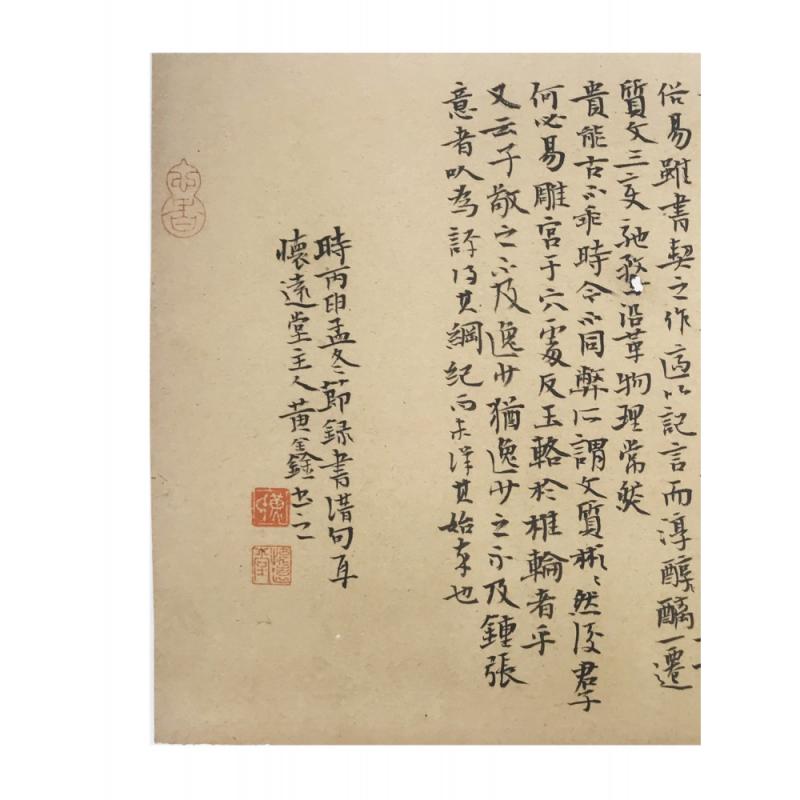 俗易雖書契之作適以記言而淳醇醨一遷
質文三變馳騖沿革物理常然
貴能古不乖時今不同弊所謂文質彬彬然後君子
何必易雕宮于穴處反玉輅於椎輪者乎
又云子敬之不及逸少猶逸少之不及鍾張
意者以為評得其綱紀而未詳其始卒也
時丙申孟冬節録書譜句耳
懷遠堂主人黃鑫書之